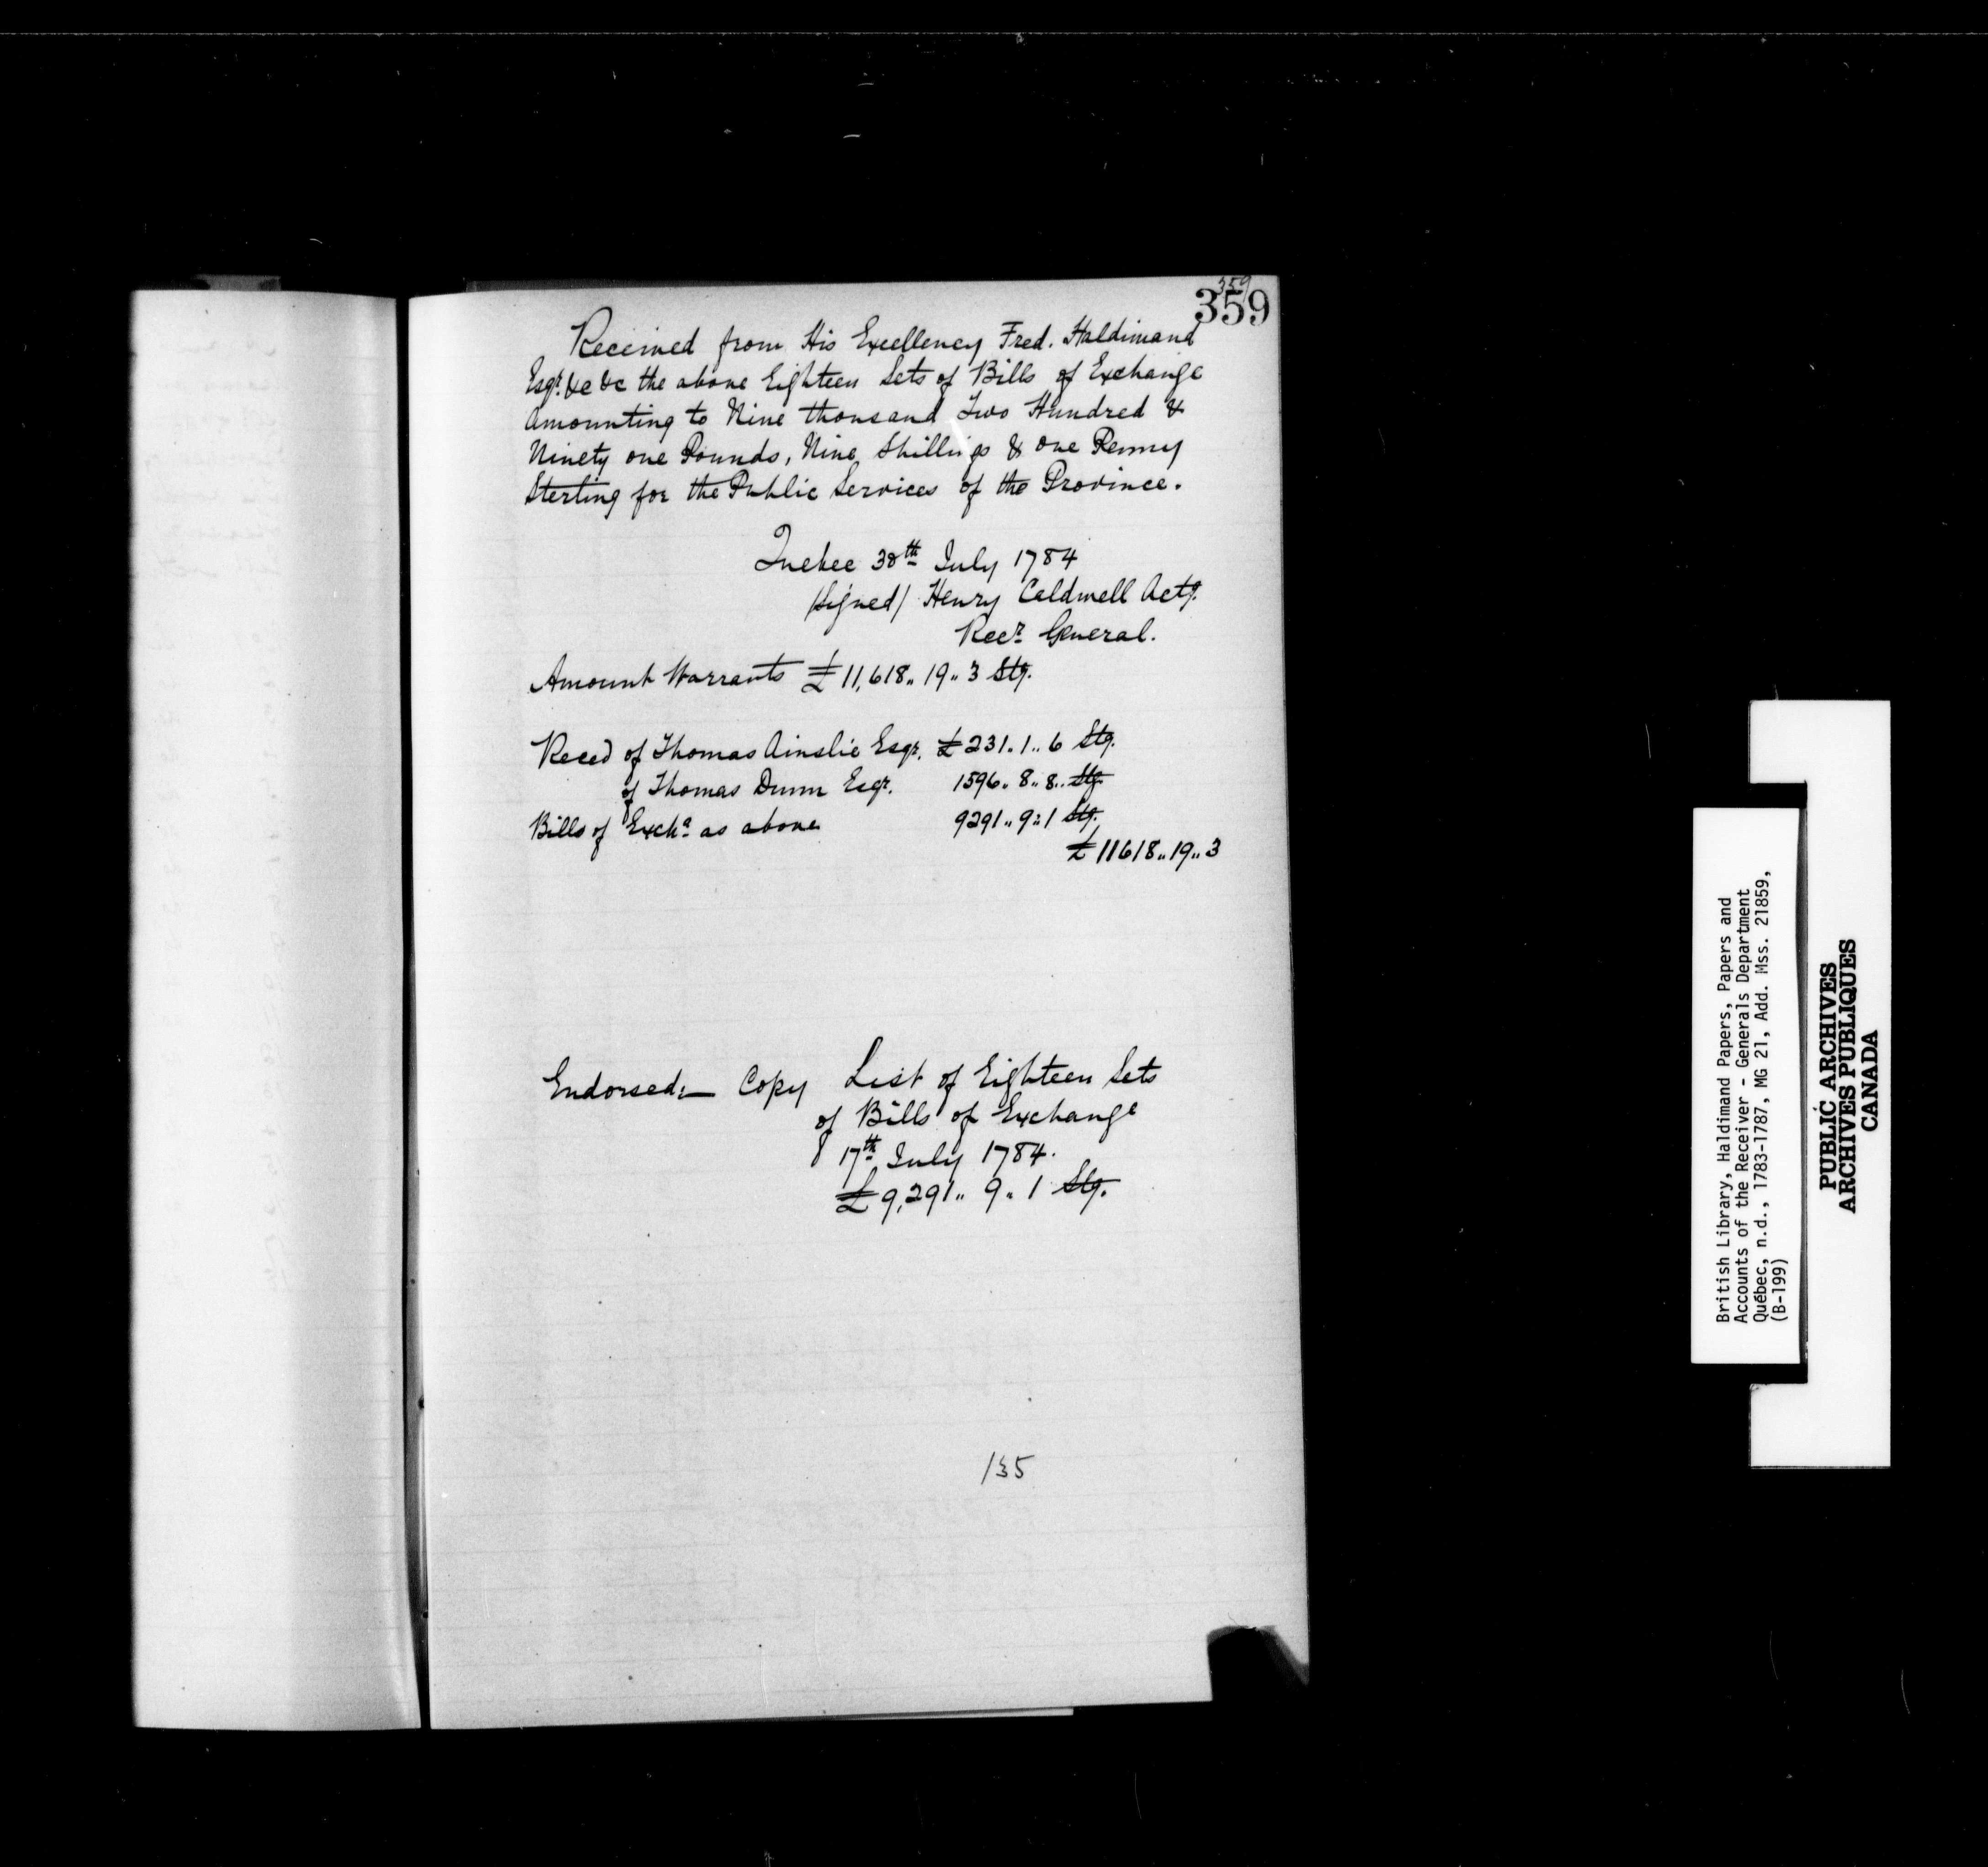 359
359
Received from His Excellency Fred. Haldimand
Esqr. &c &c the above Eighteen Sets of Bills of Exchange
amounting to Nine thousand Two Hundred &
Ninety one Pounds, Nine Shillings & One Penny
Sterling for the Public Services of the Province.
Quebec 30th July 1784
(Signed) Henry Caldwell Actg.
Recr. General.
Amount Warrants £11,618,, 19,, 3 Stg.
Reced of Thomas Ainslie Esqr. £231,, 1,, 6 Stg.
of Thomas Dunn Esqr. 1596,, 8,, 8,, Stg.
Bills of Excha. as above 9291,, 9,, 1 Stg.
£11618,, 19,, 3
Endorsed:— Copy List of Eighteen Sets
of Bills of Exchange
17th July 1784.
£9,291,, 9,, 1 Stg.
135
British Library, Haldimand Papers, Papers and
Accounts of the Receiver - Generals Department
Québec, n.d., 1783-1787, MG 21, Add. Mss. 21859,
(B-199)
PUBLIC ARCHIVES
ARCHIVES PUBLIQUES
CANADA